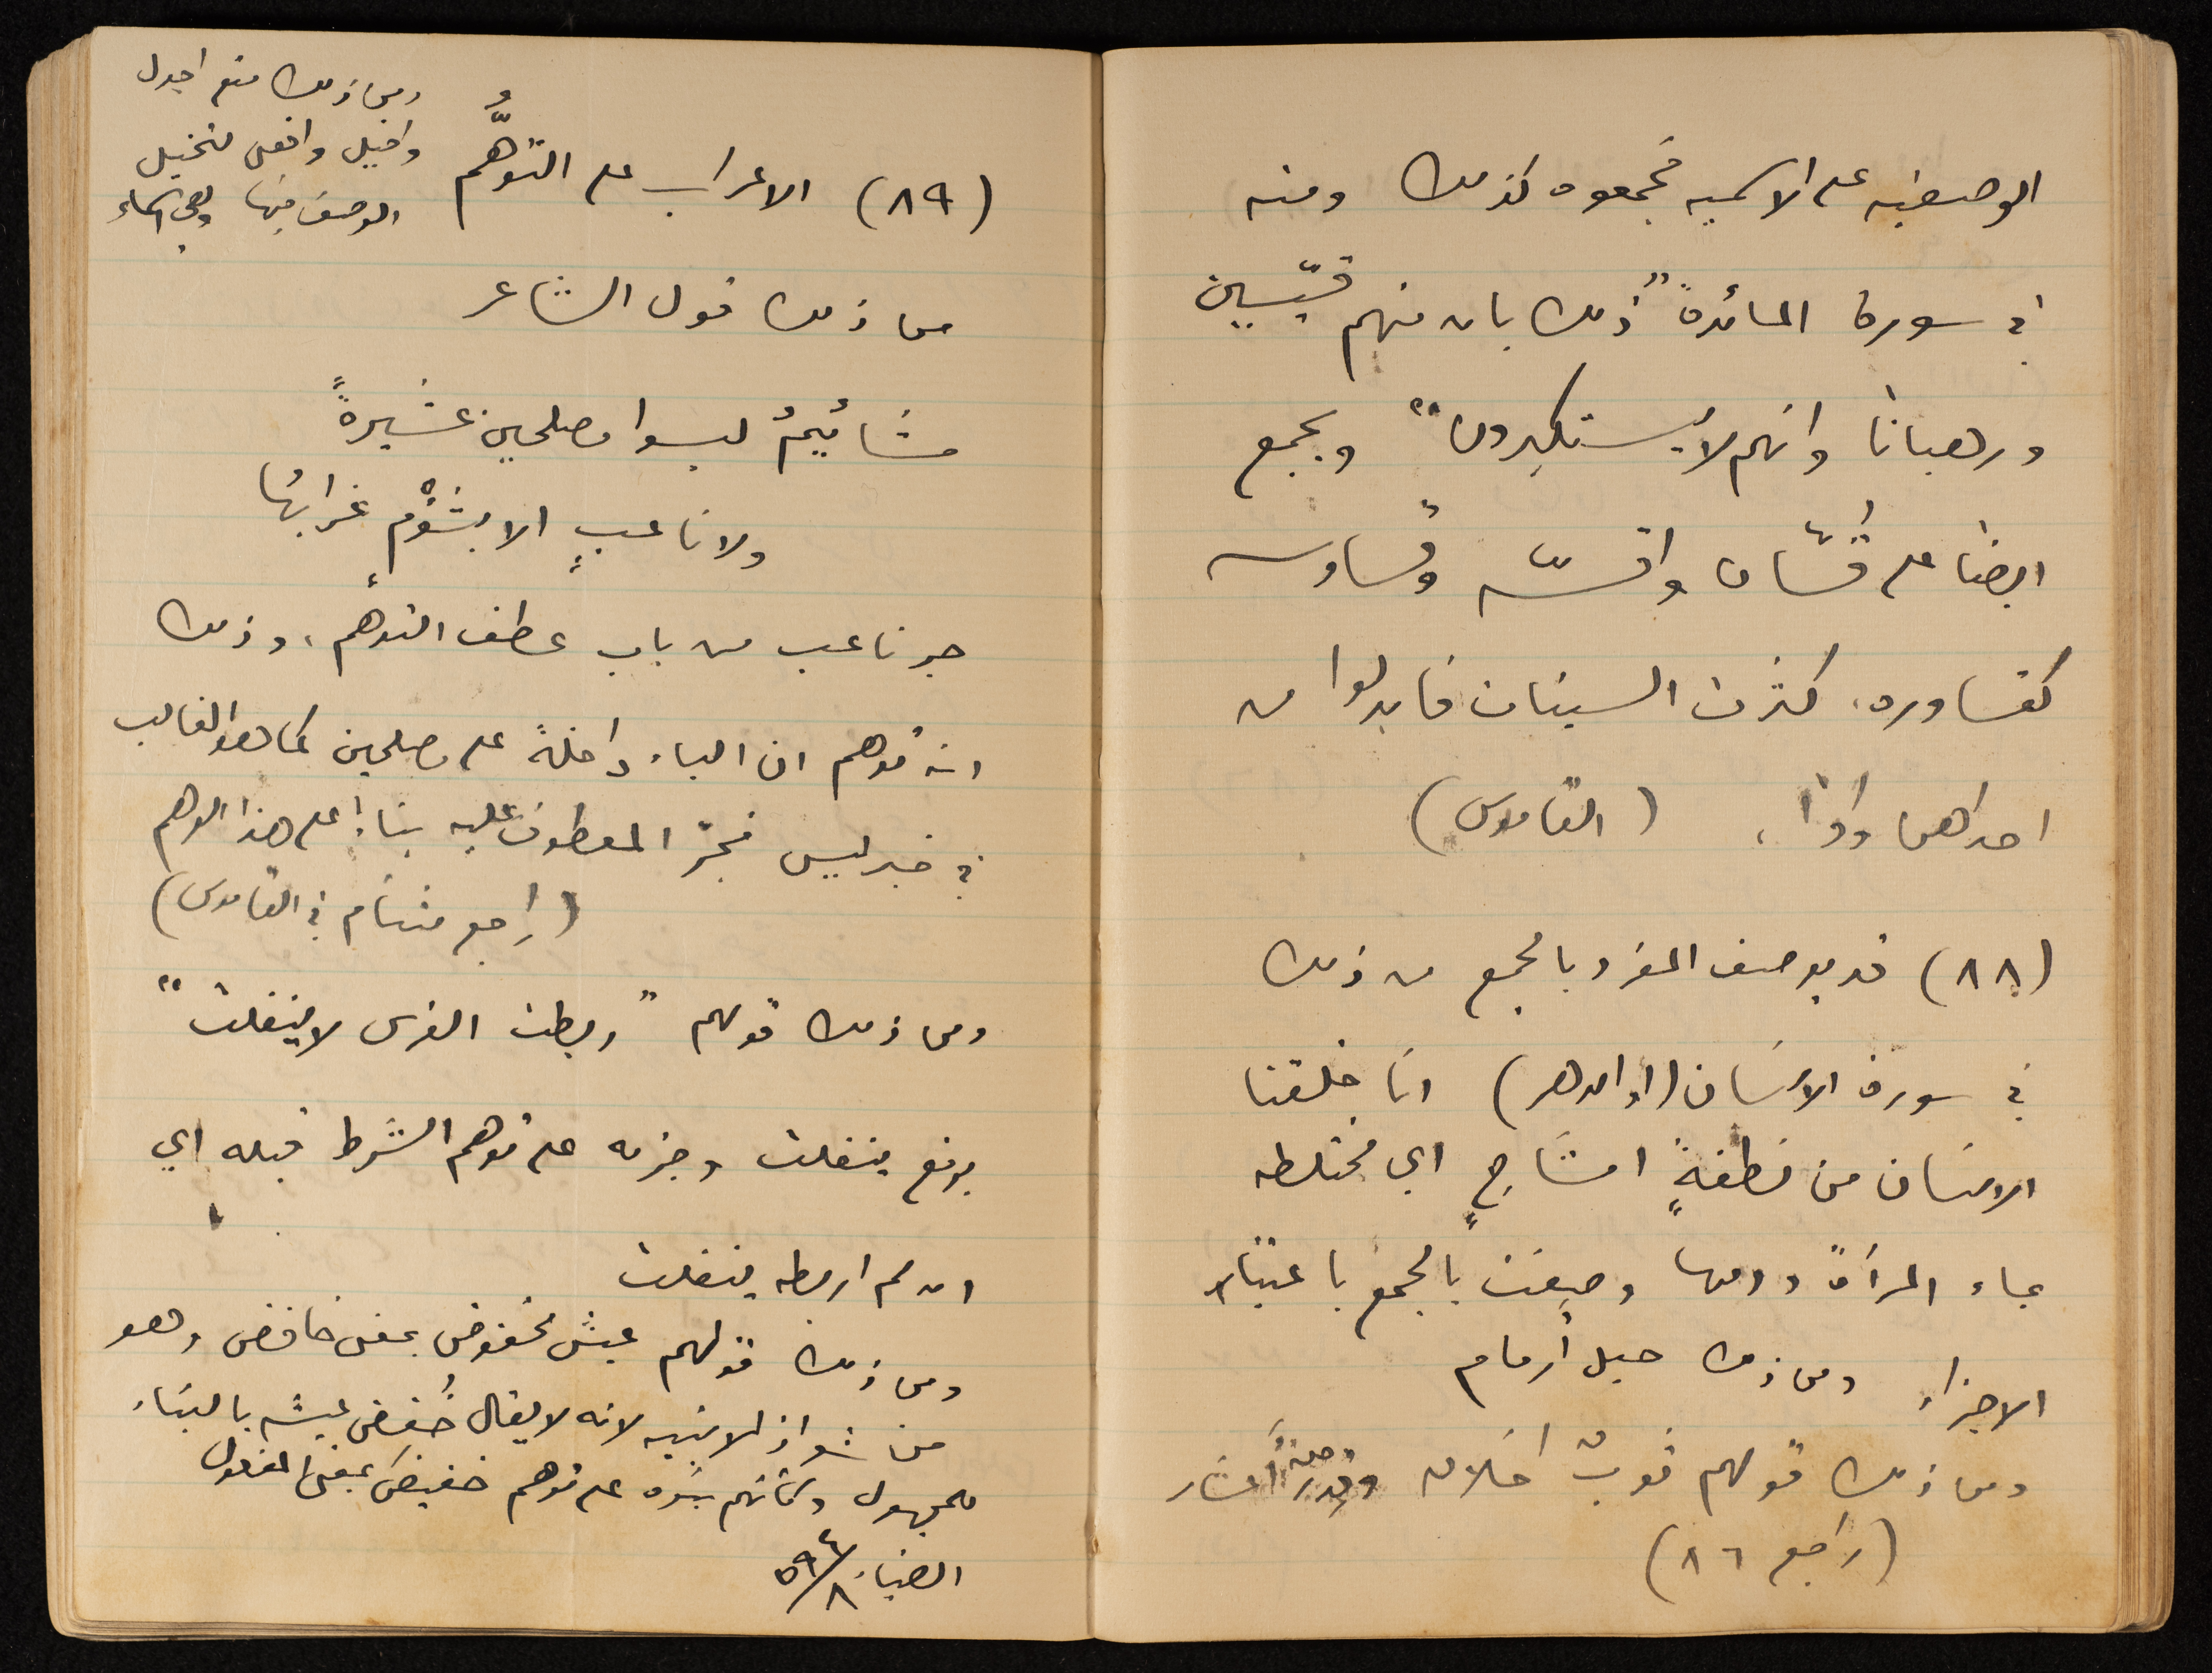 الوصفيه على الاسميه فجمعوه كذلك ومنه
في سورة المائدة "ذلك بان منهم قسّيسين
ورهبانا وانهم لا يستكبرون" ويجمع
ايضا على قُسّان واقسّه وقساوسه
كقساوره، كثرت السينات فابدلوا من
احداهن واوًا، (القاموس)
(٨٨) قد يوصف المفرد بالجمع من ذلك
في سورة الانسان (او الدهر) انا خلقنا
الانسان من نطفةٍ امشاجٍ اي مختلطه
بماء المرأة ودمها وصفت بالجمع باعتبار
الاجزاء ومن ذلك حبل أرمام
ومن ذلك قولهم ثوبٌ اخلاق وقدر أعشار
(راجع ٨٦)
ومن ذلك منع اجدل
واخيل وافعى لتخيل
الوصف فيها وهي اسماء
(٨٩) الاعراب على التوهُّم
من ذلك قول الشاعر
مشائيمُ ليسوا مصلحين عشيرةً
ولا ناعبٍ الا بشؤْمٍ غرابُها
جر ناعب من باب عطف التوهم، وذلك
انه توهم ان الباء داخلة على مصلحين كما هو الغالب
في خبر ليس فجرّ المعطوف عليه بناءً على هذا الوهم
(راجع مشئام في القاموس)
ومن ذلك قولهم "ربطت الفرس لا ينفلت"
برفع ينفلت وجزمه على توهم الشرط قبله اي
ان لم اربطه ينفلت
ومن ذلك قولهم عيش مخفوض بمعنى خافض وهو
من شواذ الابنيه لانه لا يقال خُفِض عيشه بالبناء
للمجهول وكأنهم بنوه على توهم خفيض بمعنى المفعول
الضياء ٥٩٤/٨